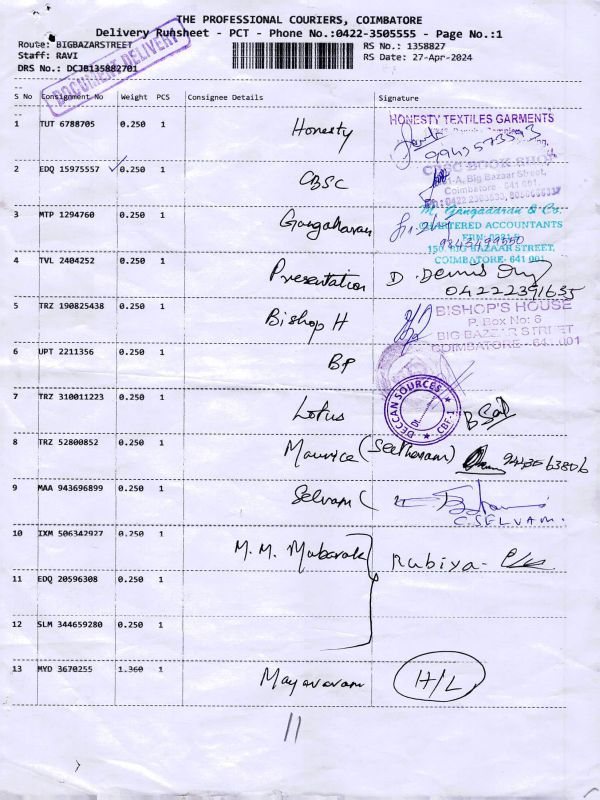 THE PROFESSIONAL COURIERS, COIMBATORE
Delivery Runsheet - PCT - Phone No.:0422-3505555 - Page No.:1
Route: BIGBAZARSTREET RS No.: 1358827
Staff: RAVI RS Date: 27-Apr-2024
DRS No.: DCJB135882701
DOCUMENT DELIVERY
S No Consignment No Weight PCS Consignee Details Signature
1 TUT 6788705 0.250 1 Honesty
HONESTY TEXTILES GARMENTS
2 EDQ 15975557 0.250 1 CBSC
CBSC BOOK SHOP
Big Bazaar Street,
Coimbatore - 641 001
3 MTP 1294760 0.250 1 Gangaharan
M. Gangadaran & Co.
CHARTERED ACCOUNTANTS
159, BIG BAZAAR STREET,
COIMBATORE- 641 001
4 TVL 2404252 0.250 1 Presentation D. Dennis
04222391635
5 TRZ 190825438 0.250 1 Bishop H
BISHOP'S HOUSE
P. Box No: 6
BIG BAZAAR STREET
COIMBATORE - 641 001
6 UPT 2211356 0.250 1 BP
7 TRZ 310011223 0.250 1 Lotus
DECCAN SOURCES CBE-1
8 TRZ 52800852 0.250 1 Maurice
9 MAA 943696899 0.250 1 Selvam (
C. SELVAM.
10 IXM 506342927 0.250 1 M. M. Mubarak Rubiya
11 EDQ 20596308 0.250 1
12 SLM 344659280 0.250 1
13 MYD 3670255 1.360 1 Mayavaram H/L
11